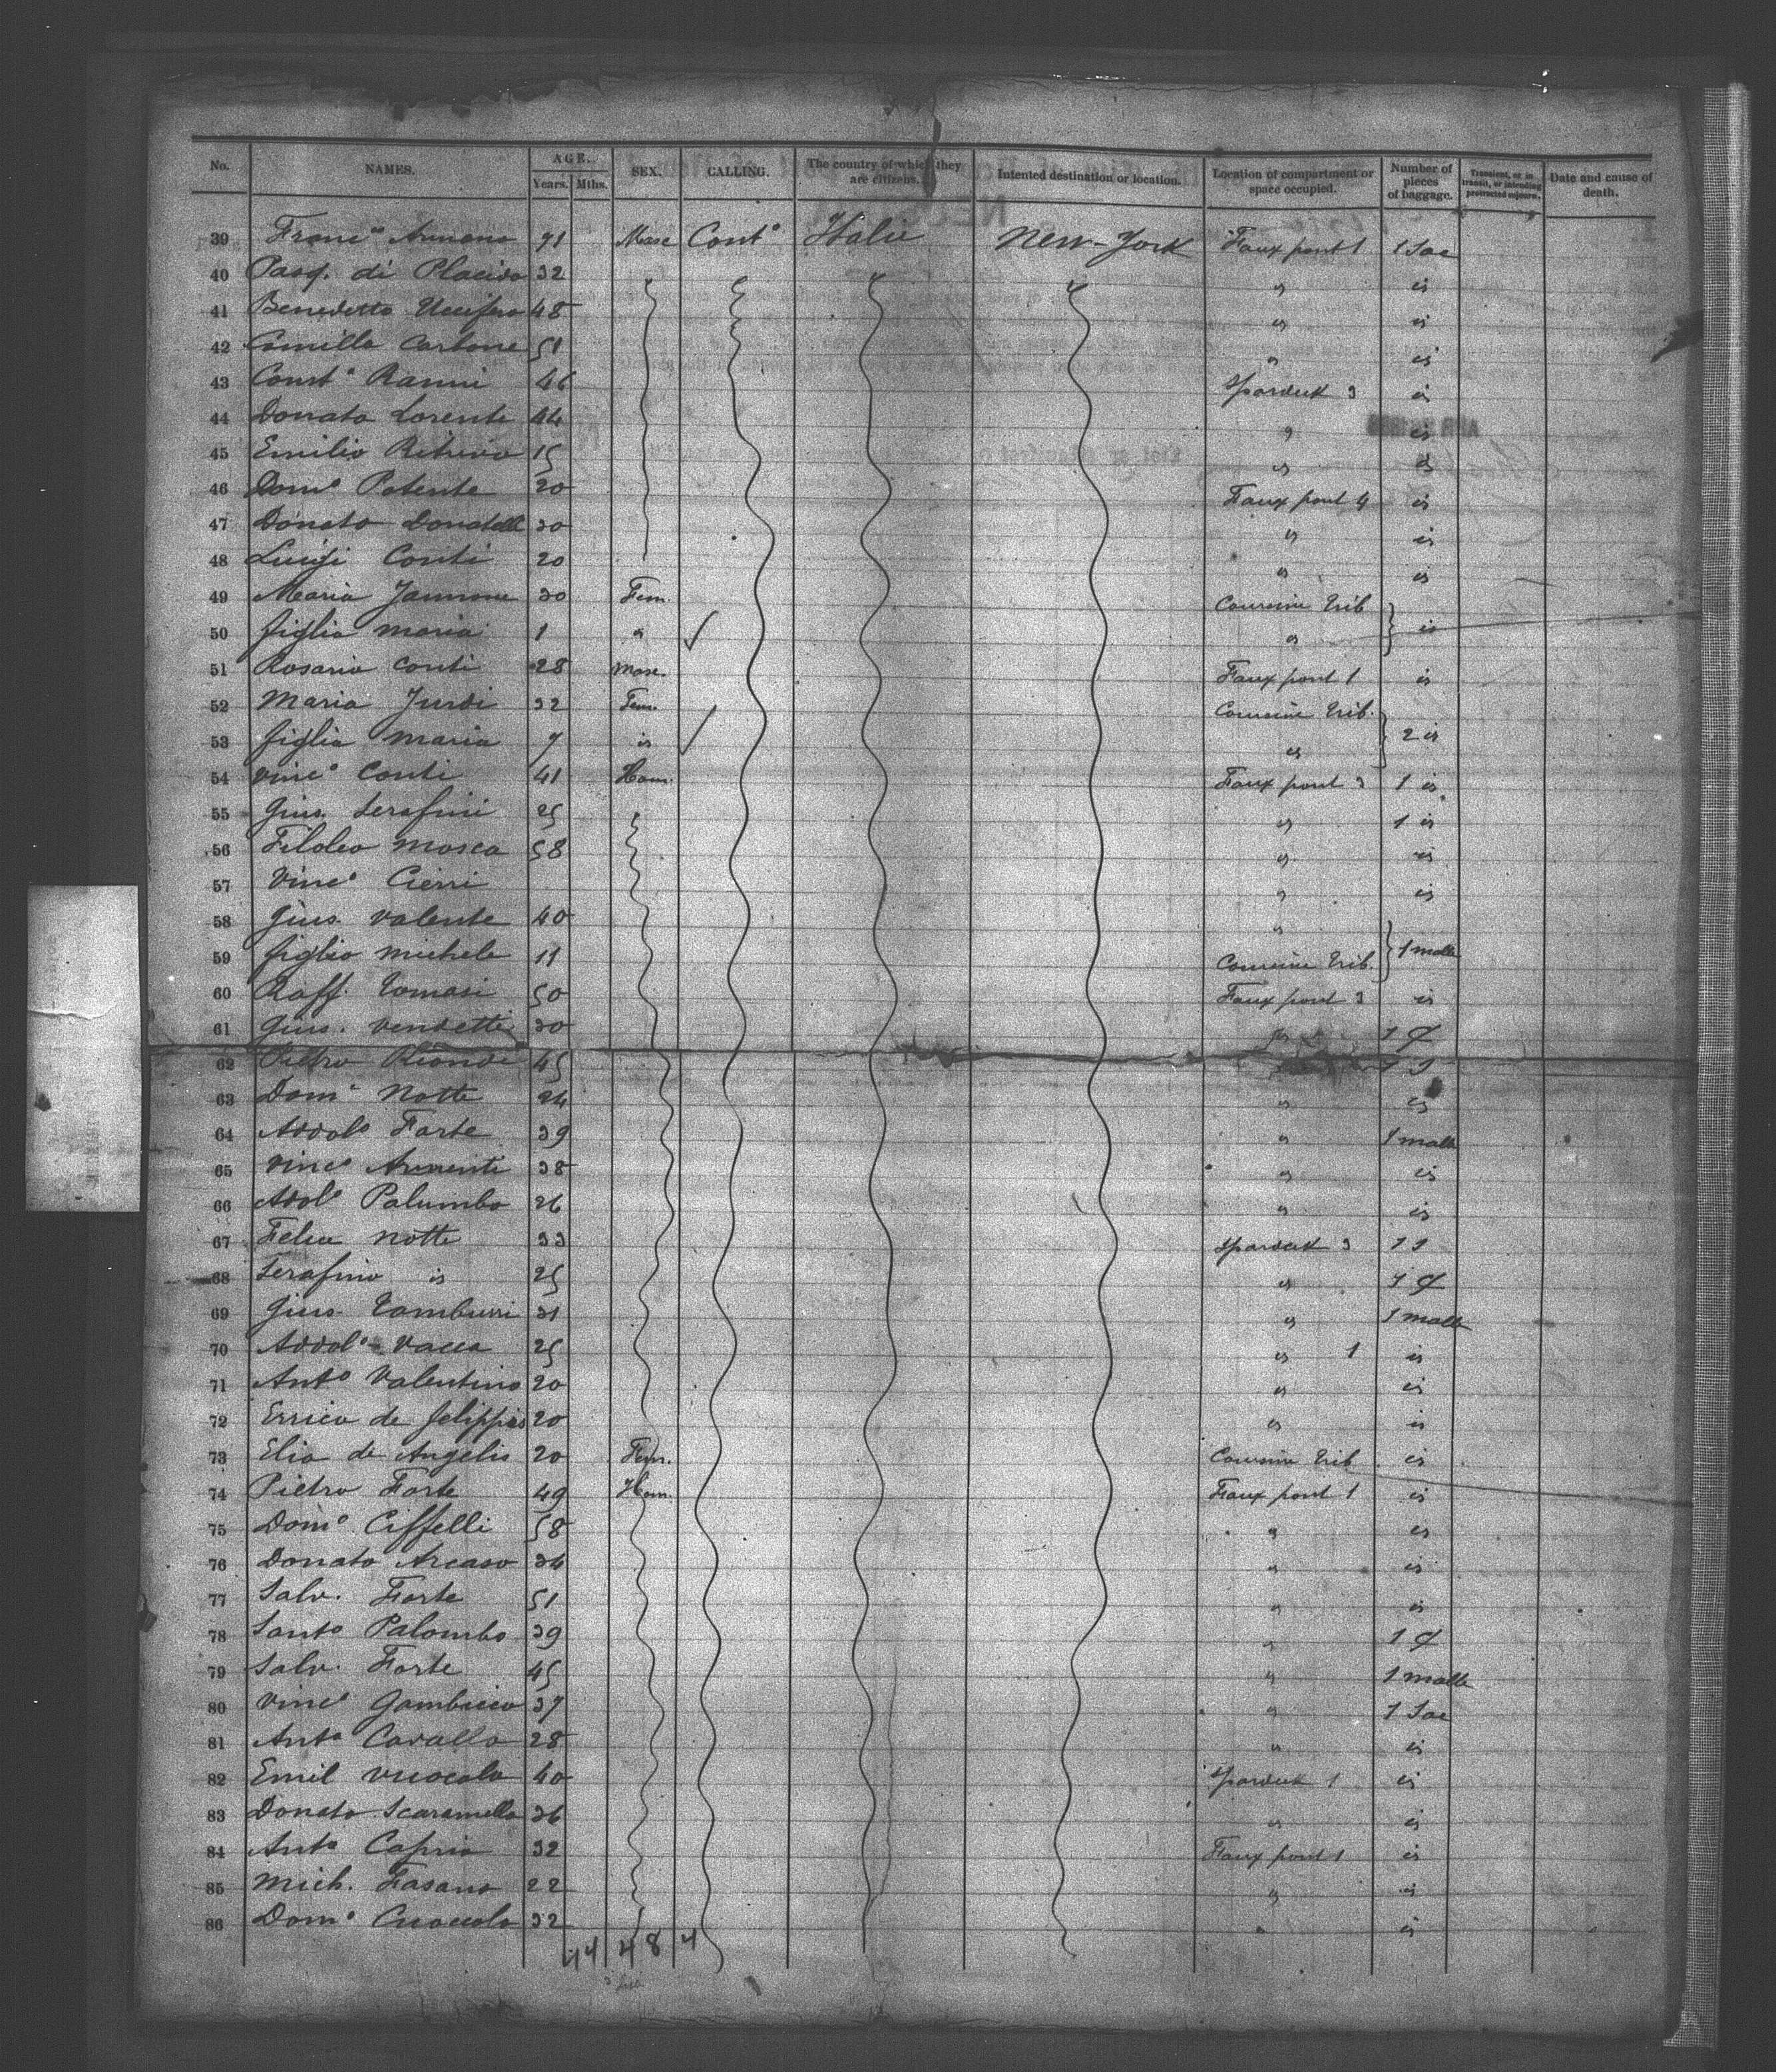 No. NAMES. AGE. Years. Mths. SEX. CALLING. The country of which they are citizens. Intented destination or location. Location of compartment or space occupied. Number of pieces of baggage. Transient, or in transit, or intending protracted sojourn. Date and cause of death.
39 Franc° 71 Masc Cont° Italie New-York Faux pont 1 1 Sac
40 Pasq. di Placido 32 " is
41 Benedetto 48 " is
42 Camillo Carbone 51 " is
43 Const° Ranni 46 Spardeck 3 is
44 Donato Lorente 44 " is
45 Emilio 15 " is
46 Dom° Potente 20 Faux pont 4 is
47 Donato Donatelli 30 " is
48 Luigi Conti 20 " is
49 Maria Jannone 30 Fem. Trib
50 figlia maria 1 " " is
51 Rosario Conti 28 Masc. Faux pont 1 is
52 Maria 32 Fem. Trib.
53 figlia maria 7 is " 2 is
54 Vinc° Conti 41 Hom. Faux pont 3 1 is
55 Gius. Serafini 25 " 1 is
56 Mosca 58 " is
57 Vinc° Cierri " is
58 Gius. Valente 40 "
59 figlio michele 11 Trib. 1 malle
60 Raff. Tomasi 50 Faux pont 3 is
61 Gius. Vendetti 30 " 1
62 Pietro 45
63 Dom° Notte 24 " is
64 Addol° Forte 39 " 1 malle
65 Vinc° 38 " is
66 Adol° Palumbo 26 " is
67 Notte 33 Spardeck 3
68 Serafino is 25 " 1
69 Gius. Tamburri 31 " 1 malle
70 Addol° Vacca 25 " 1 is
71 Ant° Valentino 20 " is
72 Errico de felippis 20 " is
73 Elia de Angelis 20 Fem. Trib. is
74 Pietro Forte 49 Hom. Faux pont 1 is
75 Dom° Ciffelli 58 " is
76 Donato Arcaso 34 " is
77 Salv. Forte 51 " is
78 Santo Palombo 39 " 1
79 Salv. Forte 45 " 1 malle
80 Vinc° 37 " 1 Sac
81 Ant° Cavallo 28 " is
82 Emil Vuocolo 40 Spardeck 1 is
83 Donato Scaramella 36 " is
84 Ant° Caprio 32 Faux pont 1 is
85 Mich. Fasano 22 " is
86 Dom° Cuoccolo 32 " is
44 48 4